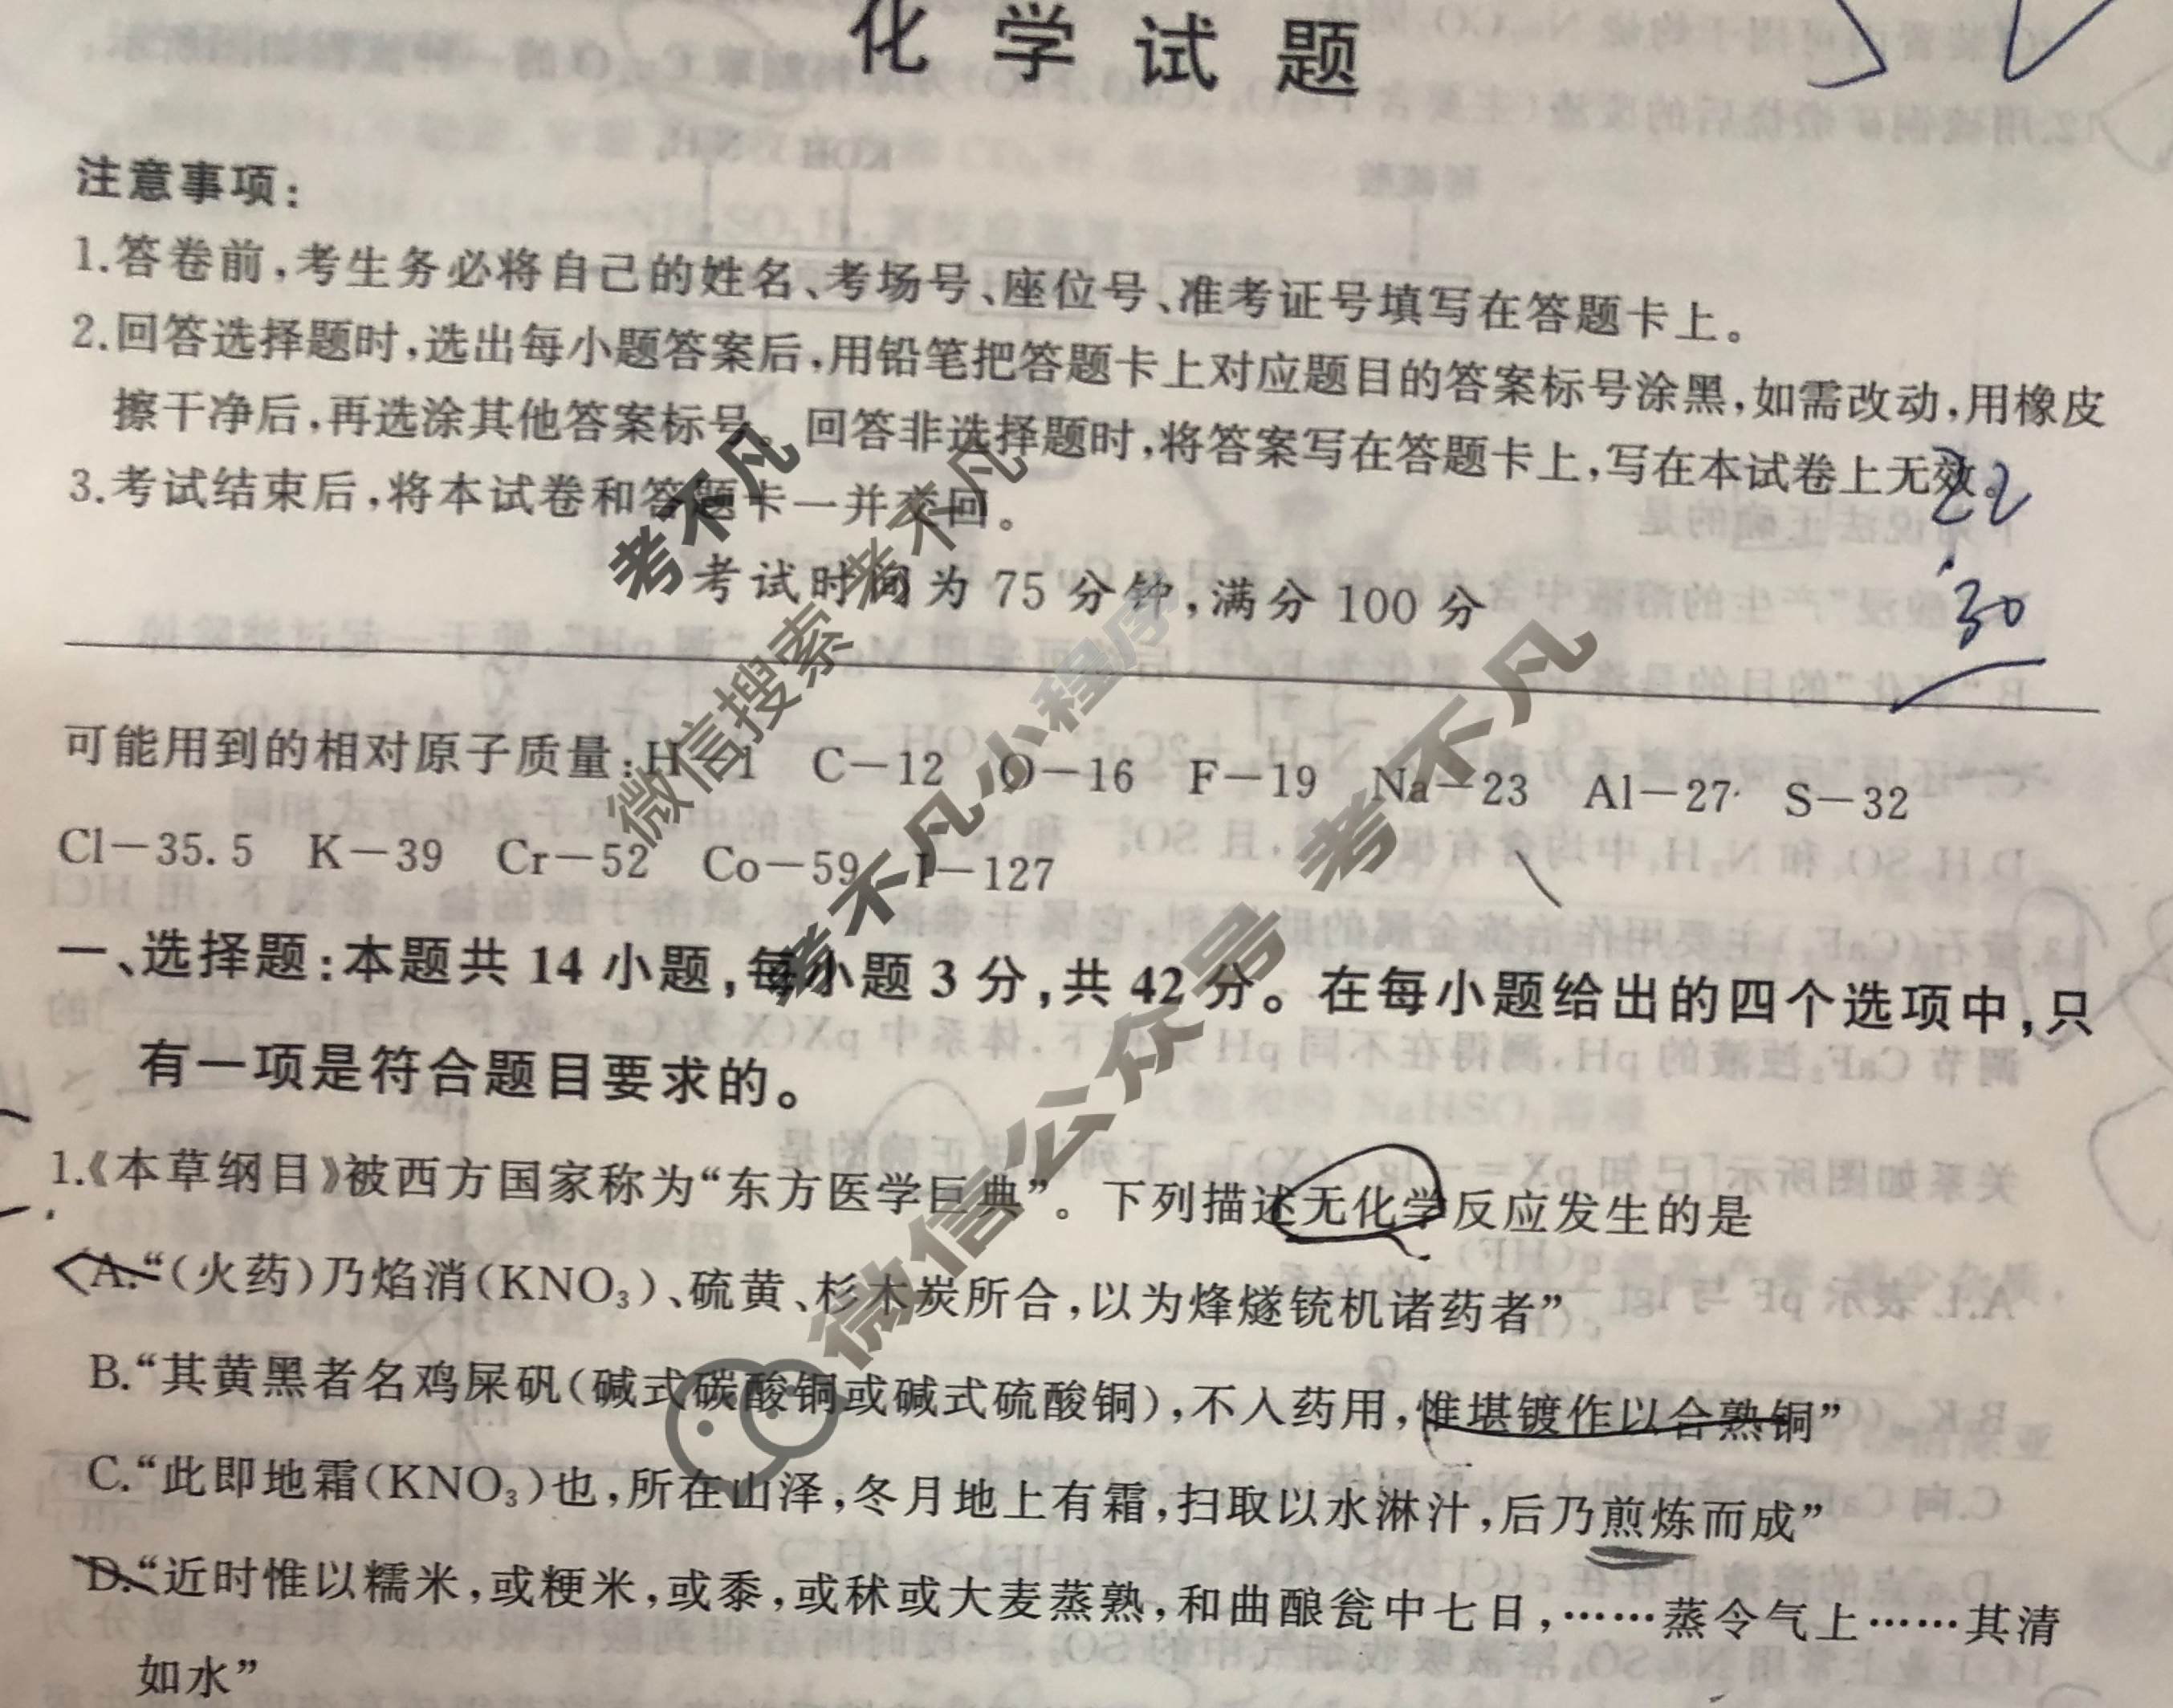 化学试题
注意事项：
1.答卷前,考生务必将自己的姓名、考场号、座位号、准考证号填写在答题卡上。
2.回答选择题时,选出每小题答案后,用铅笔把答题卡上对应题目的答案标号涂黑,如需改动,用橡皮
擦干净后,再选涂其他答案标号。回答非选择题时,将答案写在答题卡上,写在本试卷上无效。
3.考试结束后,将本试卷和答题卡一并交回。
考试时间为 75 分钟,满分 100 分
22
30
可能用到的相对原子质量:H—1 C—12 O—16 F—19 Na—23 Al—27 S—32
Cl—35.5 K—39 Cr—52 Co—59 I—127
一、选择题:本题共 14 小题,每小题 3 分,共 42 分。在每小题给出的四个选项中,只
有一项是符合题目要求的。
1.《本草纲目》被西方国家称为“东方医学巨典”。下列描述无化学反应发生的是
A.“(火药)乃焰消(KNO₃)、硫黄、杉木炭所合,以为烽燧铳机诸药者”
B.“其黄黑者名鸡屎矾(碱式碳酸铜或碱式硫酸铜),不入药用,惟堪镀作以合熟铜”
C.“此即地霜(KNO₃)也,所在山泽,冬月地上有霜,扫取以水淋汁,后乃煎炼而成”
D.“近时惟以糯米,或粳米,或黍,或秫或大麦蒸熟,和曲酿瓮中七日,……蒸令气上……其清
如水”
考不凡
微信搜索 考不凡
考不凡小程序
微信公众号 考不凡